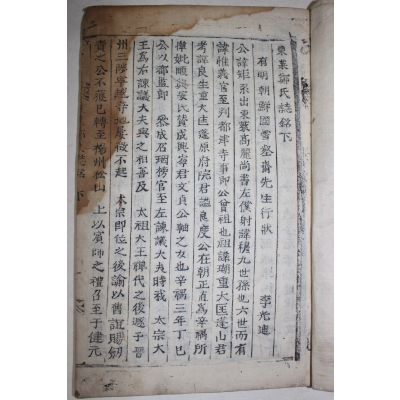 東萊鄭氏誌銘下
有明朝鮮國雪壑齋先生行狀
李光迪
公諱矩系出東萊高麗尚書左僕射諱穆九世孫也六世而有
諱惟義官至判都津寺事公曾祖也祖諱瑚重大匡蓬山君
考諱良生重大匡蓬原府院君謚良度公在朝正直爲辛禑所
憚妣順興安氏贊成興寧君文貞公軸之女也辛禑三年丁巳
公以都監郎登成石璘榜官至左諫議大夫時我太宗大
王爲右諫議大夫與之相善及太祖大王禪代之後遯于晉
州三陟寧越等地屢徵不起太宗即位之後諭以舊誼賜
責之公不獲已轉至楊州松山上以賓師之禮召至于健元